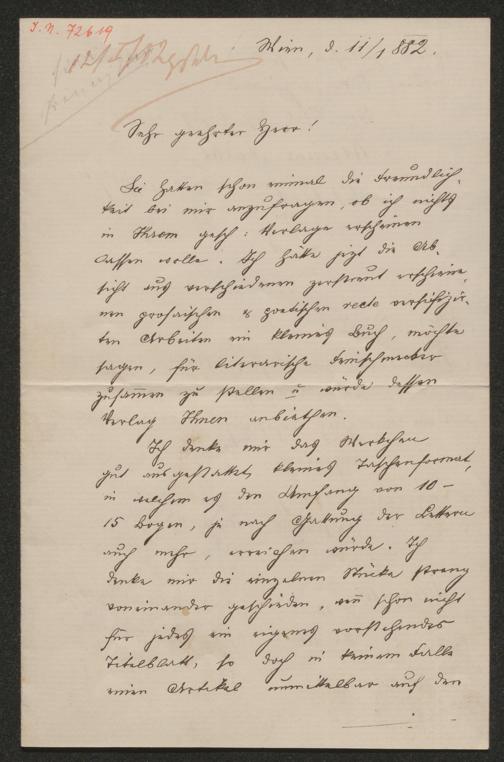 I. N. 72619
12/I/82
Wien, d. 11/1 882.
Sehr geehrter Herr!
Sie hatten schon einmal die Freundlich-
keit bei mir anzufragen, ob ich nichts
in Ihrem gesch: Verlage erscheinen
lassen wolle. Ich hätte jezt die Ab-
sicht aus verschiedenen zerstreut erschiene-
nen prosaischen & poetischen recte versifizir-
ten Arbeiten ein kleines Buch, möchte
sagen, für literarische Feinschmecker
zusammen zu stellen u würde dessen
Verlag Ihnen anbiethen.
Ich denke mir das Werkchen
gut ausgestattet, kleines Taschenformat,
in welchem es den Umfang von 10 –
15 Bogen, je nach Gattung der Lettern
auch mehr, erreichen würde. Ich
denke mir die einzelnen Stücke streng
voneinander geschieden, wenn schon nicht
für jedes ein eigenes vorstehendes
Titelblatt, so doch in keinem Falle
einen Artikel unmittelbar auf den